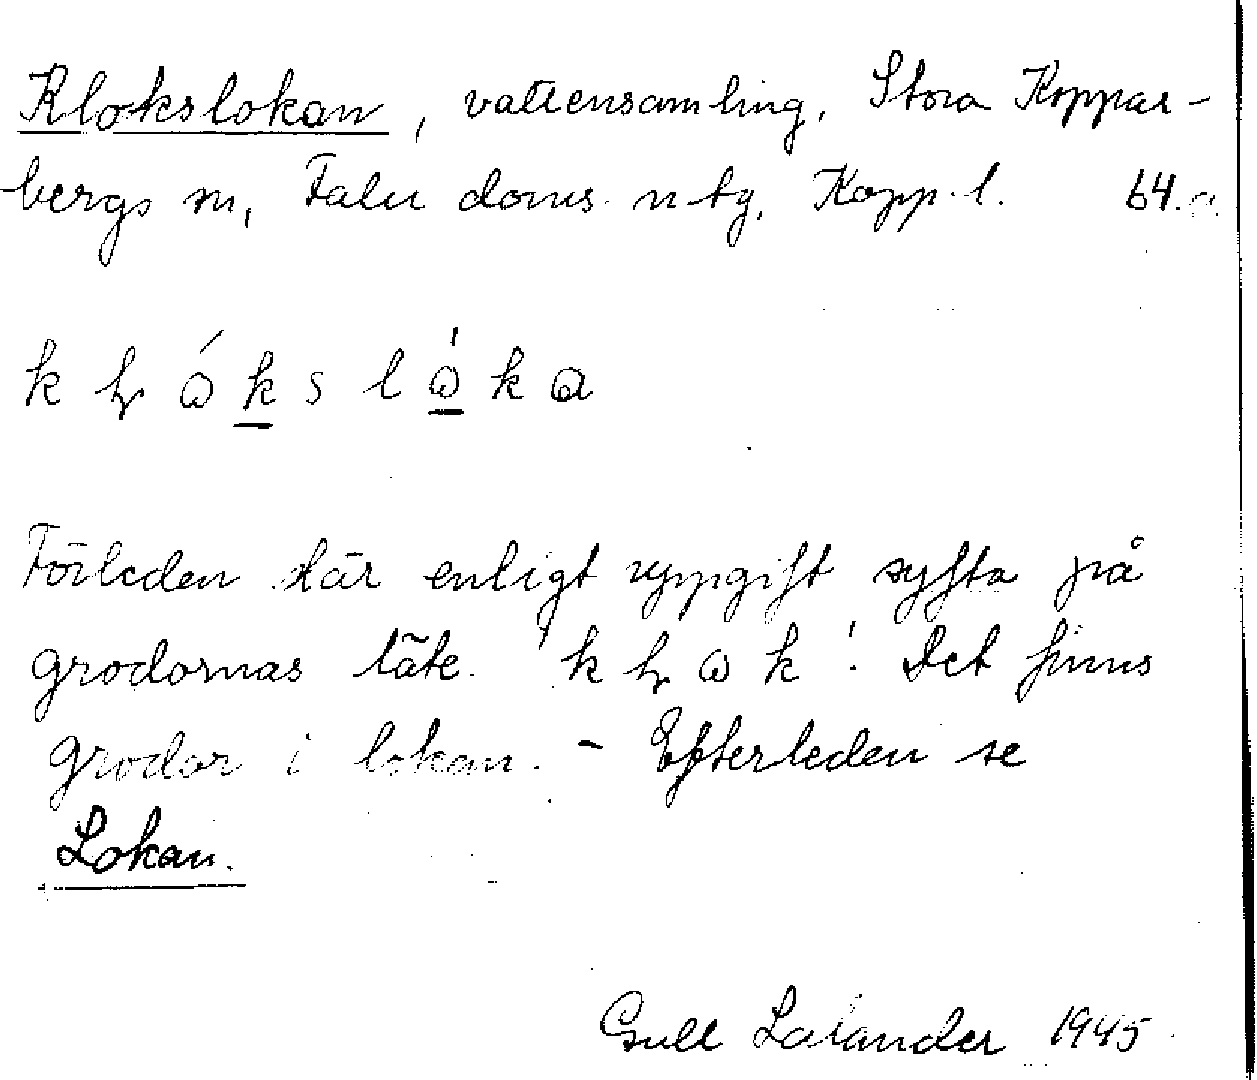 Klokslokan, vattensamling, Stora Koppar-
bergs sn, Falu doms. ntg, Kopp. l. 64.a
Förleden lär enligt uppgift syfta på
grodornas läte. Det finns
grodor i lokan. - Efterleden se
Lokan.
Gull Lalander 1945